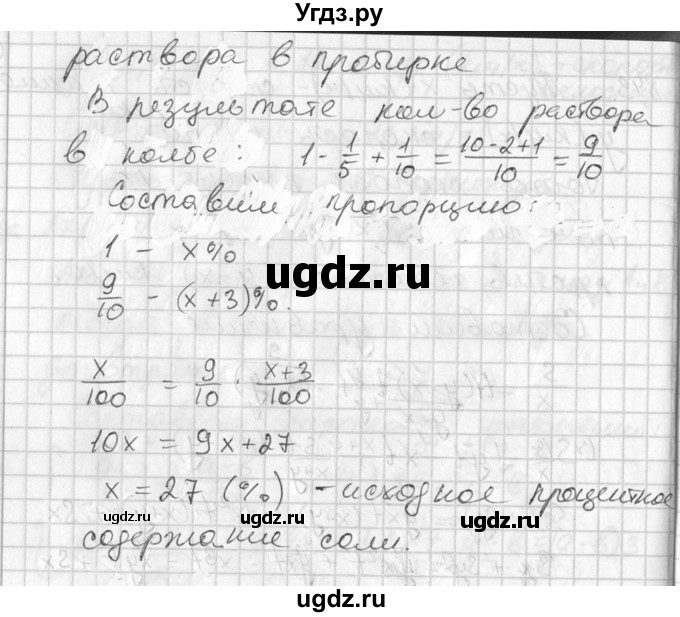 Угдз.ру
раствора в пробирке
В результате кол-во раствора
в колбе: 1 - 1/5 + 1/10 = (10-2+1)/10 = 9/10
Составим пропорцию:
1 - x%
ugdz.ru
9/10 - (x+3)%.
x/100 = 9/10 · (x+3)/100
10x = 9x+27
x = 27 (%) - исходное процентное
ugdz.ru ugdz.ru ugdz.ru
содержание соли.
ugdz.ru